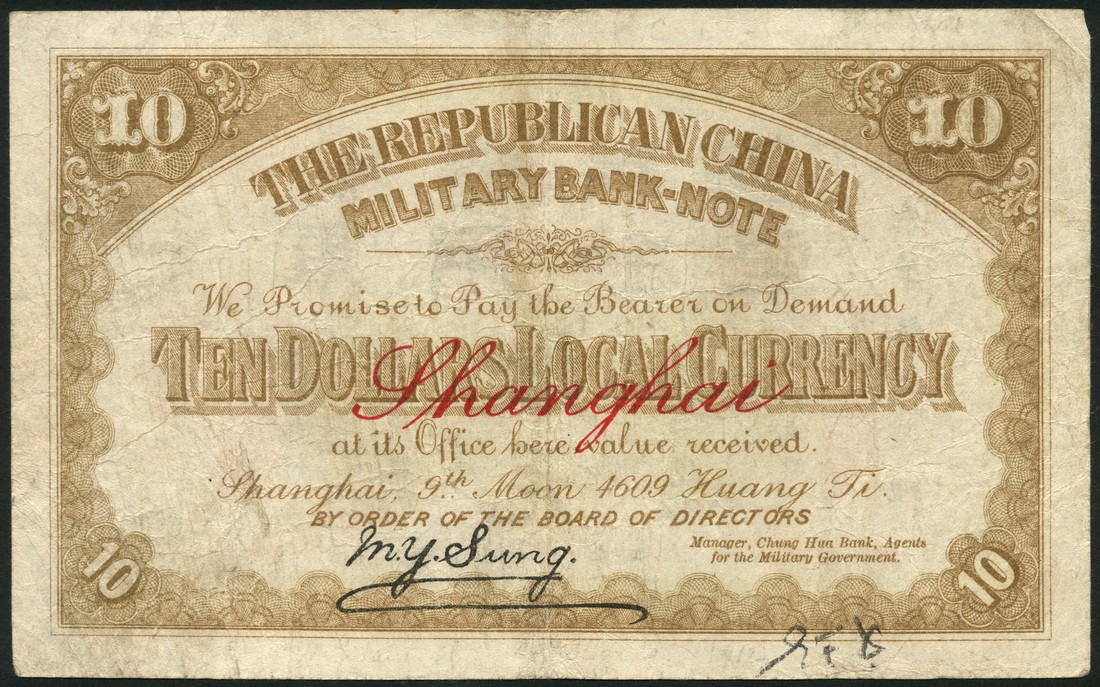 10 10
THE REPUBLICAN CHINA
MILITARY BANK-NOTE
We Promise to Pay the Bearer on Demand
TEN DOLLARS LOCAL CURRENCY
Shanghai
at its Office here value received.
Shanghai, 9th. Moon 4609 Huang Ti.
BY ORDER OF THE BOARD OF DIRECTORS
M.Y. Sung.
Manager, Chung Hua Bank, Agents
for the Military Government.
10 10